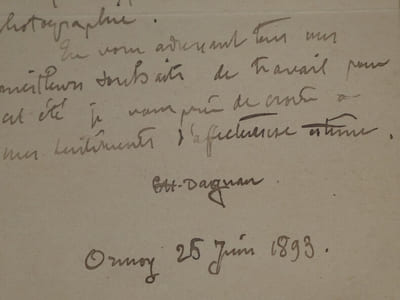 photographie.
En vous adressant tous mes
meilleurs souhaits de travail pour
cet été je vous prie de croire à
mes sentiments d'affectueuse estime.
Dagnan
Ormoy 25 Juin 1893.